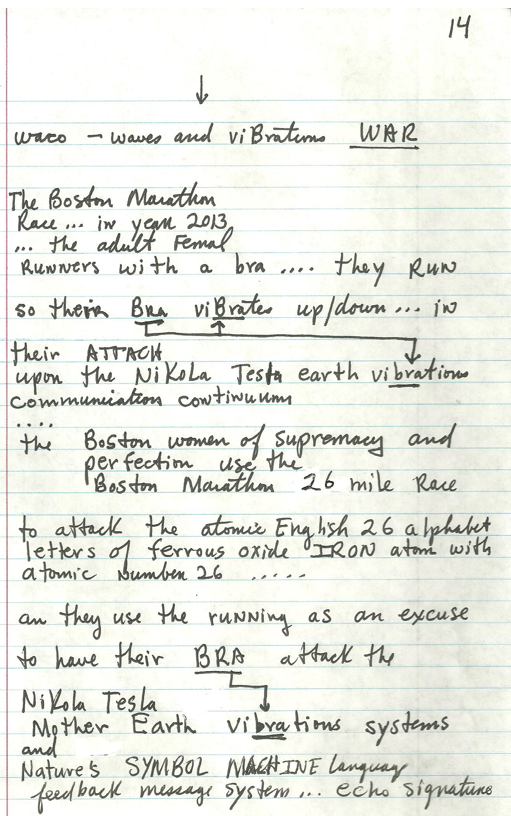 14
waco – waves and viBrations WAR
The Boston Marathon
Race ... in year 2013
... the adult Femal
Runners with a bra .... they Run
so their Bra viBrates up/down ... in
their ATTACH
upon the NiKola Tesla earth vibrations
communication continuum
....
the Boston women of supremacy and
perfection use the
Boston Marathon 26 mile Race
to attack the atomic English 26 alphabet
letters of ferrous oxide IRON atom with
atomic number 26 .....
an they use the running as an excuse
to have their BRA attack the
NiKola Tesla
Mother Earth vibrations systems
and
Nature's SYMBOL MACHINE Language
feedback message system ... echo signature